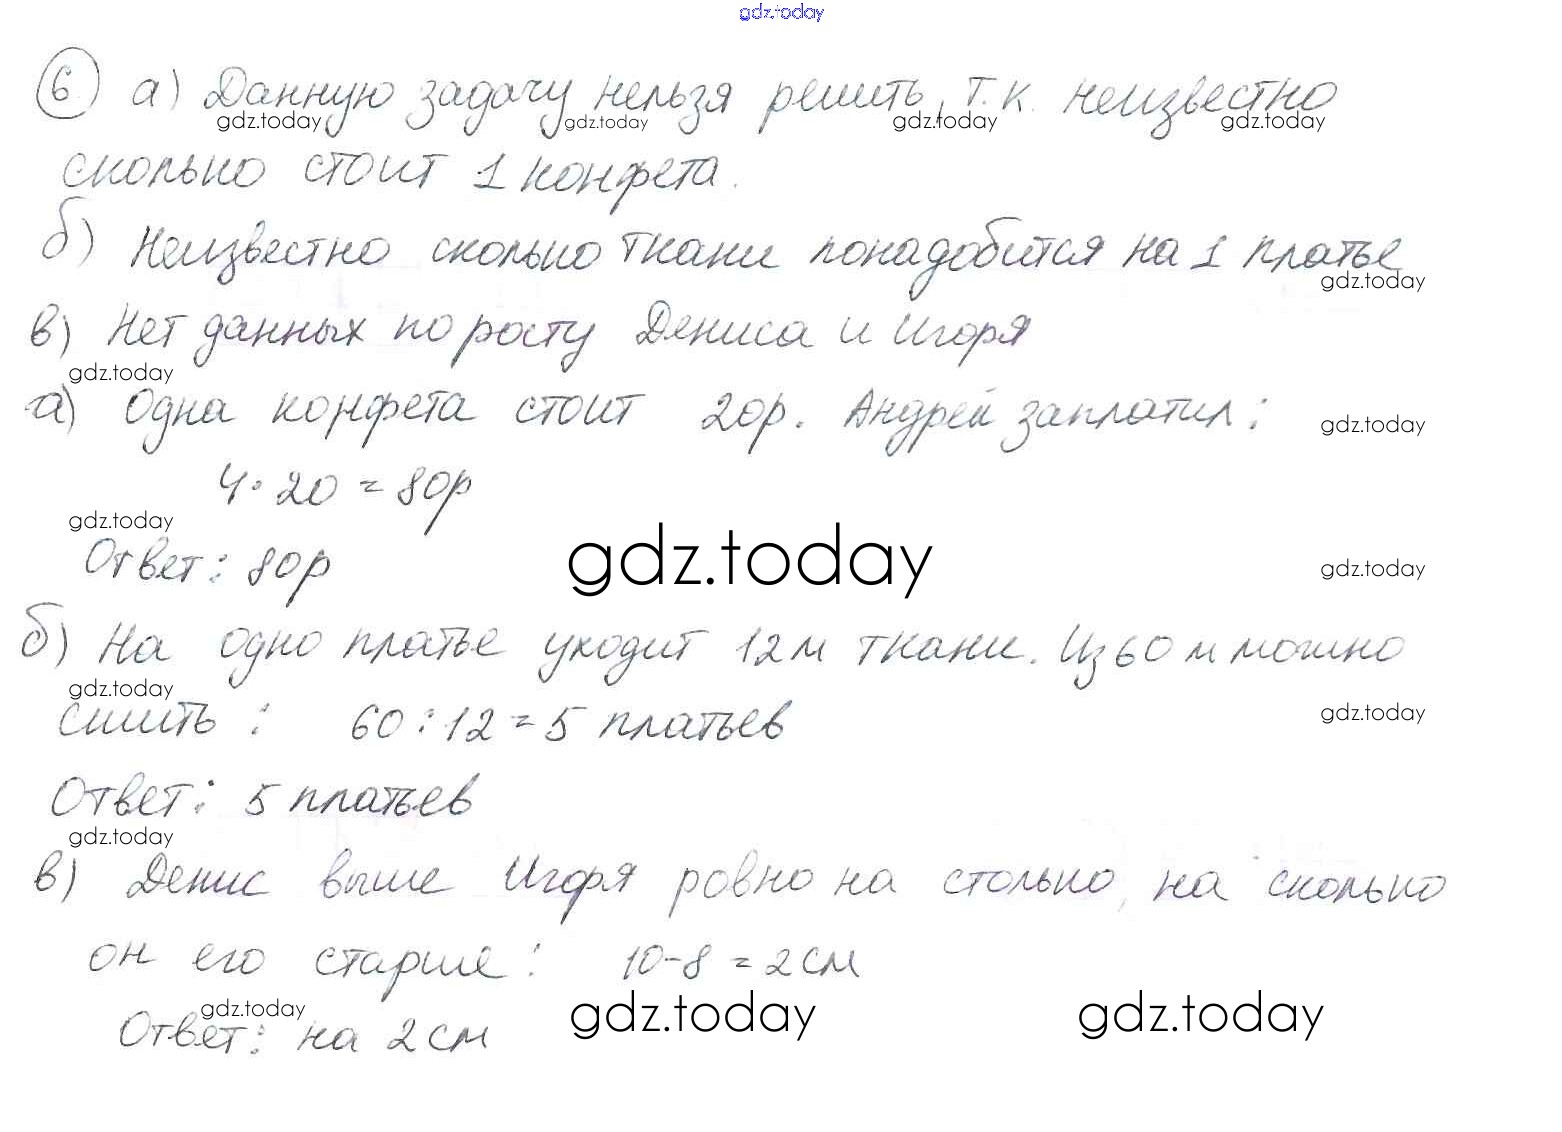 gdz.today
6 а) Данную задачу нельзя решить, т.к. неизвестно
gdz.today gdz.today gdz.today gdz.today
сколько стоит 1 конфета.
б) Неизвестно сколько ткани понадобится на 1 платье
gdz.today
в) Нет данных по росту Дениса и Игоря
gdz.today
а) Одна конфета стоит 20р. Андрей заплатил:
gdz.today
4·20=80р
gdz.today
Ответ: 80р
gdz.today
gdz.today
б) На одно платье уходит 12м ткани. Из 60м можно
gdz.today
сшить: 60:12=5 платьев
gdz.today
Ответ: 5 платьев
gdz.today
в) Денис выше Игоря ровно на столько, на сколько
он его старше: 10-8=2см
gdz.today gdz.today gdz.today
Ответ: на 2см